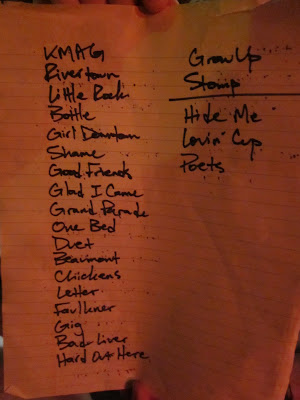 KMAG
Rivertown
Little Rock
Bottle
Girl Downtown
Shame
Good Friends
Glad I Came
Grand Parade
One Bed
Duet
Beaumont
Chickens
Letter
Faulkner
Gig
Bad Liver
Hard Out Here
Grow Up
Stomp
Hide Me
Lovin' Cup
Poets